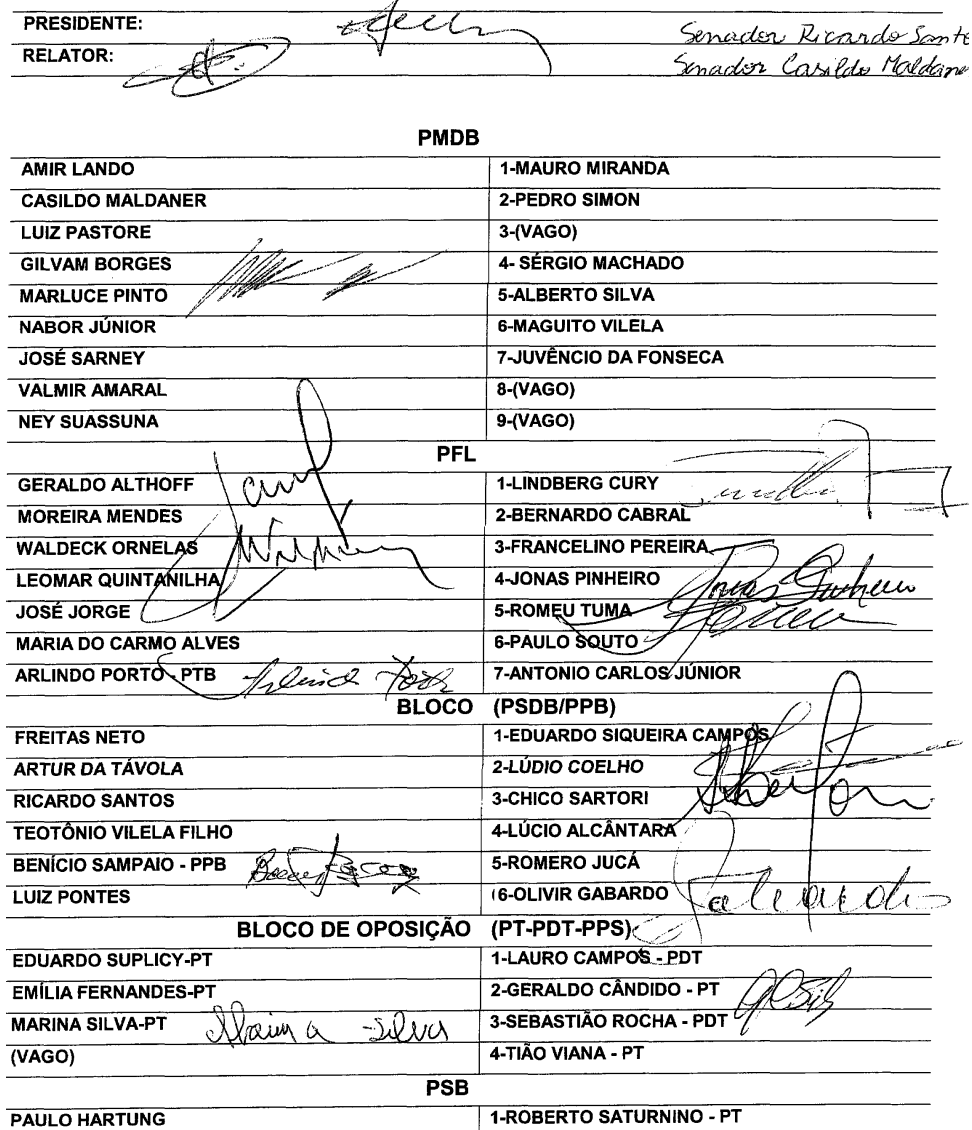 PRESIDENTE: Senador Ricardo
RELATOR: Senador Casildo
PMDB
AMIR LANDO 1-MAURO MIRANDA
CASILDO MALDANER 2-PEDRO SIMON
LUIZ PASTORE 3-(VAGO)
GILVAM BORGES 4- SÉRGIO MACHADO
MARLUCE PINTO 5-ALBERTO SILVA
NABOR JÚNIOR 6-MAGUITO VILELA
JOSÉ SARNEY 7-JUVÊNCIO DA FONSECA
VALMIR AMARAL 8-(VAGO)
NEY SUASSUNA 9-(VAGO)
PFL
GERALDO ALTHOFF 1-LINDBERG CURY
MOREIRA MENDES 2-BERNARDO CABRAL
WALDECK ORNELAS 3-FRANCELINO PEREIRA
LEOMAR QUINTANILHA 4-JONAS PINHEIRO
JOSÉ JORGE 5-ROMEU TUMA
MARIA DO CARMO ALVES 6-PAULO SOUTO
ARLINDO PORTO - PTB 7-ANTONIO CARLOS JÚNIOR
BLOCO (PSDB/PPB)
FREITAS NETO 1-EDUARDO SIQUEIRA CAMPOS
ARTUR DA TÁVOLA 2-LÚDIO COELHO
RICARDO SANTOS 3-CHICO SARTORI
TEOTÔNIO VILELA FILHO 4-LÚCIO ALCÂNTARA
BENÍCIO SAMPAIO - PPB 5-ROMERO JUCÁ
LUIZ PONTES 6-OLIVIR GABARDO
BLOCO DE OPOSIÇÃO (PT-PDT-PPS)
EDUARDO SUPLICY-PT 1-LAURO CAMPOS - PDT
EMÍLIA FERNANDES-PT 2-GERALDO CÂNDIDO - PT
MARINA SILVA-PT Marina Silva 3-SEBASTIÃO ROCHA - PDT
(VAGO) 4-TIÃO VIANA - PT
PSB
PAULO HARTUNG 1-ROBERTO SATURNINO - PT